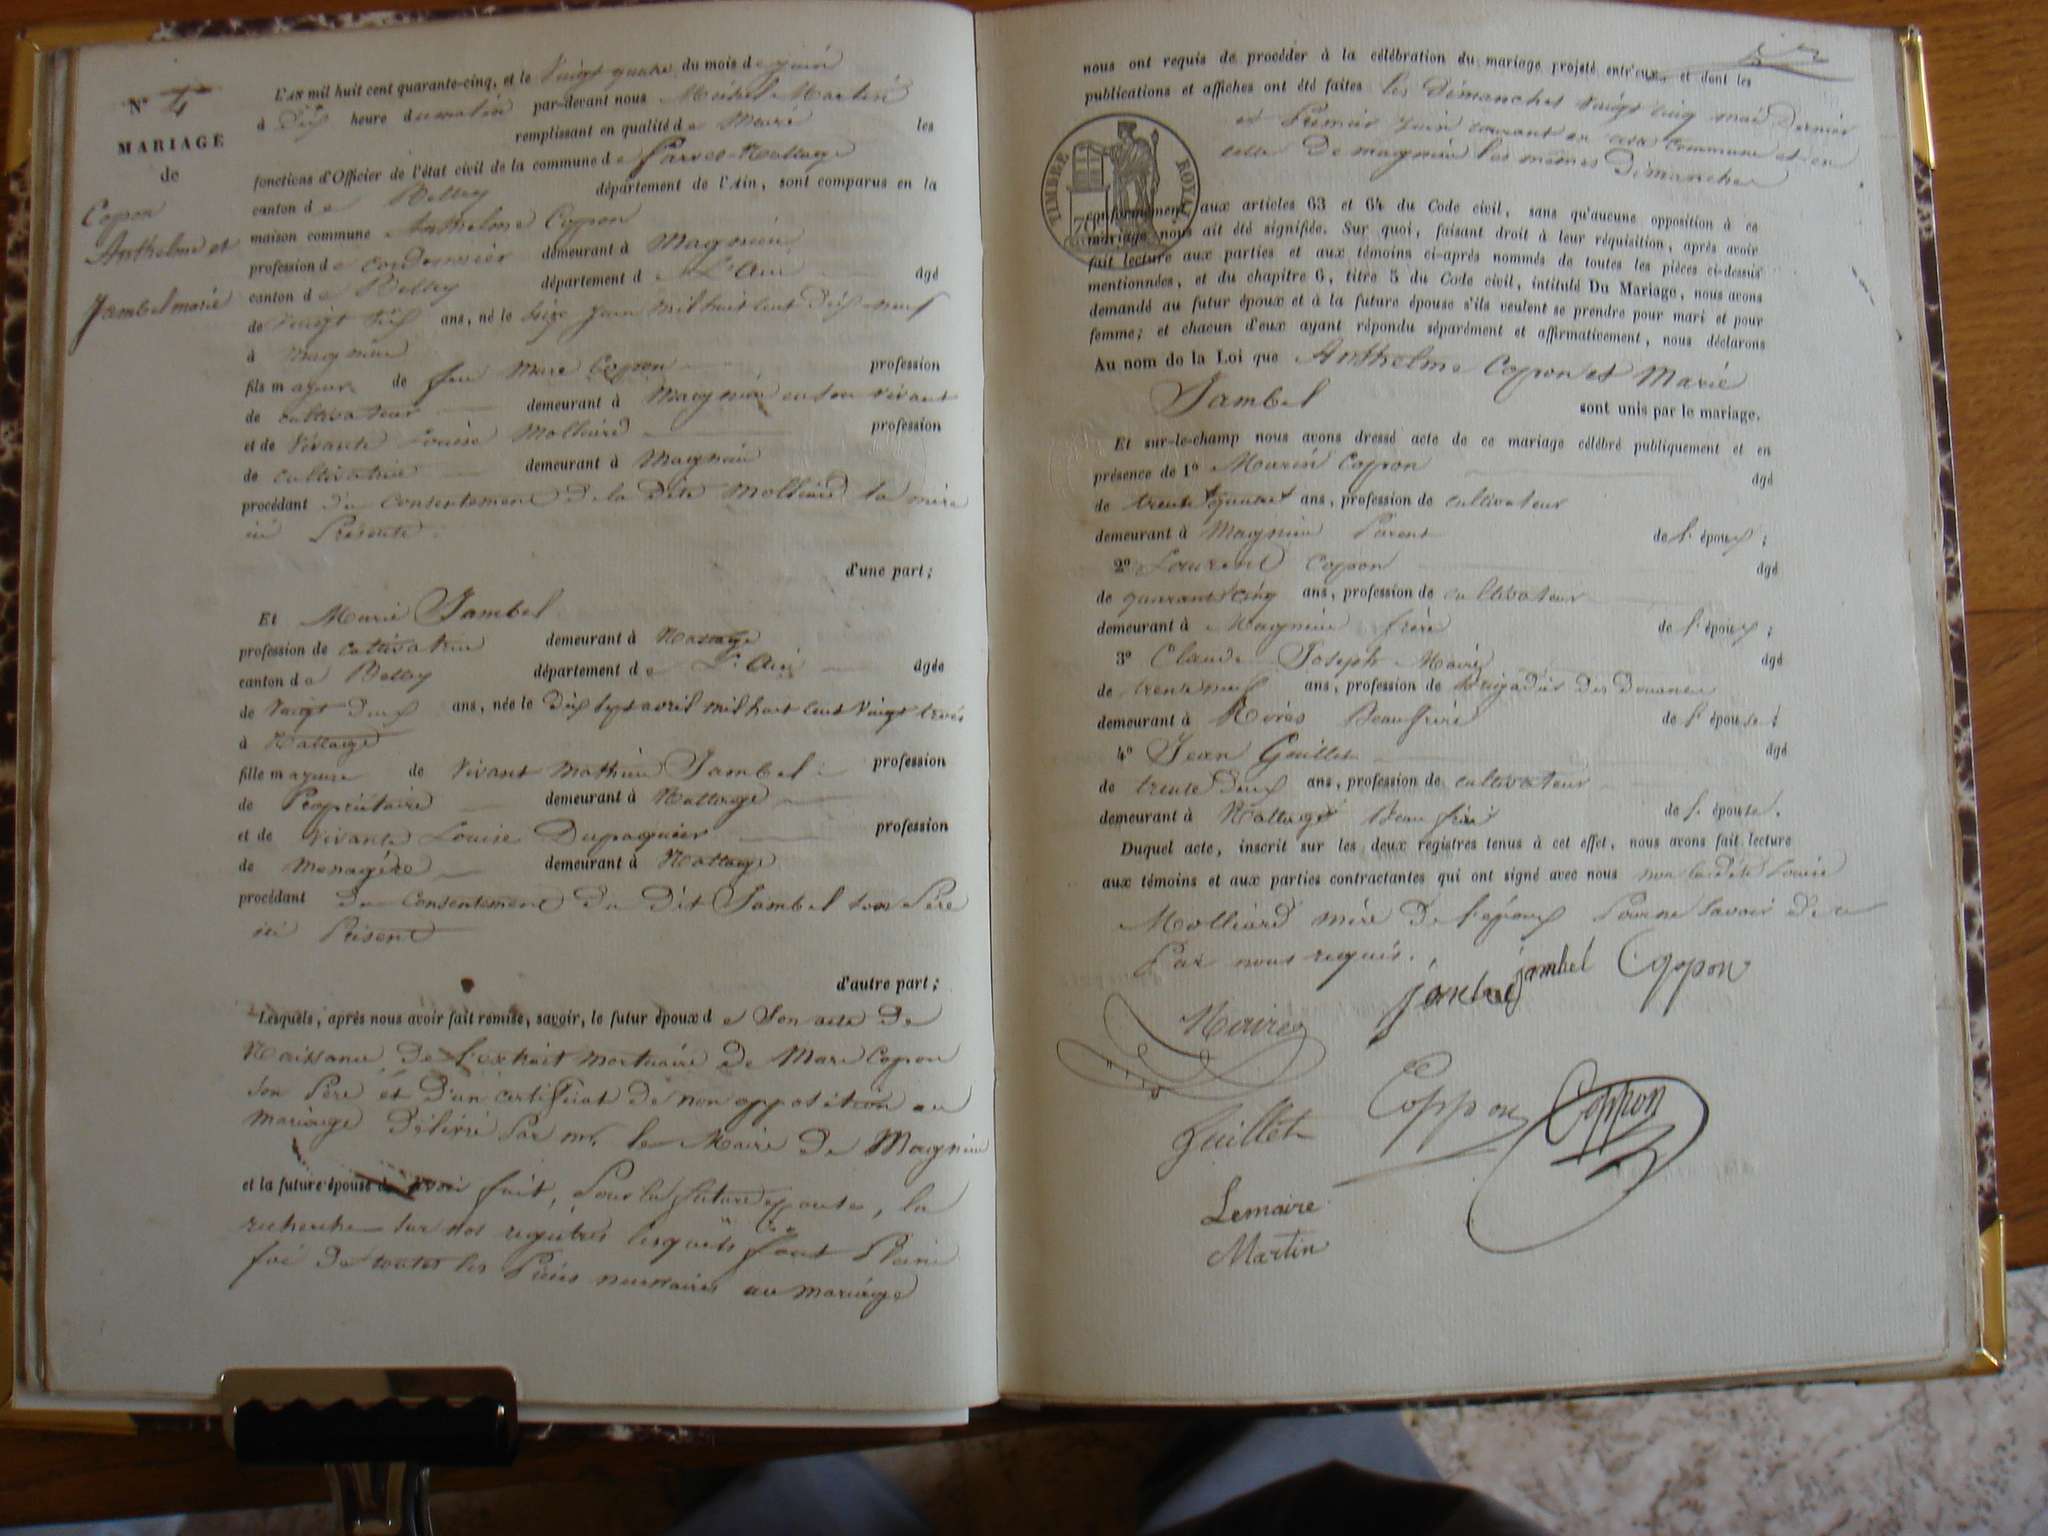 N° 4
MARIAGE
de
Copon
Anthelme et
Jambel marie
L'AN mil huit cent quarante-cinq, et le Vaigt quatre du mois de juin
à Dix heure du matin par-devant nous Michel Martin
remplissant en qualité de Maire les
fonctions d'Officier de l'état civil de la commune de Parves-Nattage
canton de Belley département de l'Ain, sont comparus en la
maison commune Anthelme Copon
profession de cordonnier demeurant à Magnieu
canton de Belley département de L'Ain âgé
de vaigt six ans, né le seize juin mil huit cent dix-neuf
à Magnieu
fils mayeur de feu Marc Copon profession
de cultivateur demeurant à Magnieu en son vivant
et de Vivante Louise Molliard profession
de cultivatrice demeurant à Magnieu
procédant du Consentement de la dite Molliard sa mère
ici Présente.
d'une part;
Et Marie Jambel
profession de cultivatrice demeurant à Nattage
canton de Belley département de L'Ain âgée
de Vaigt deux ans, née le dix sept avril mil huit cent Vaigt trois
à Nattage
fille mayeure de Vivant Mathieu Jambel profession
de Propriétaire demeurant à Nattage
et de Vivante Louise Dupaquier profession
de Menagère demeurant à Nattage
procédant du Consentement du Dit Jambel son Père
ici Présent
d'autre part;
Lesquels, après nous avoir fait remise, savoir, le futur époux de Son acte de
Naissance, de l'extrait mortuaire de Marc Copon
son Père et d'un certificat de non opposition au
mariage délivré Par mr. le Maire de Magnieu
et la future épouse d'avoir fait, Pour la future epouse, la
recherche sur nos registres lesquels font Pleine
foi de toutes les Pièces necessaires au mariage
nous ont requis de procéder à la célébration du mariage projeté entr'eux, et dont les
publications et affiches ont été faites les Dimanches vaigt cinq mai Dernier
et Premier juin courant en cette Commune et en
celle de magnieu les mêmes Dimanches
TIMBRE ROYAL
70
conformément aux articles 63 et 64 du Code civil, sans qu'aucune opposition à ce
mariage nous ait été signifiée. Sur quoi, faisant droit à leur réquisition, après avoir
fait lecture aux parties et aux témoins ci-après nommés de toutes les pièces ci-dessus
mentionnées, et du chapitre 6, titre 5 du Code civil, intitulé Du Mariage, nous avons
demandé au futur époux et à la future épouse s'ils veulent se prendre pour mari et pour
femme; et chacun d'eux ayant répondu séparément et affirmativement, nous déclarons
Au nom de la Loi que Anthelme Copon et Marie
Jambel sont unis par le mariage.
Et sur-le-champ nous avons dressé acte de ce mariage célébré publiquement et en
présence de 1° Marin Copon âgé
de trente quatre ans, profession de cultivateur
demeurant à Magnieu Parent de l'époux;
2° Laurent Copon âgé
de quarante cinq ans, profession de cultivateur
demeurant à Magnieu frère de l'époux;
3° Claude Joseph Maire âgé
de trente neuf ans, profession de Brigadier des douanes
demeurant à Beaufrère de l'épouse;
4° Jean Guillet âgé
de trente deux ans, profession de cultivateur
demeurant à Nattage Beau frère de l'épouse.
Duquel acte, inscrit sur les deux registres tenus à cet effet, nous avons fait lecture
aux témoins et aux parties contractantes qui ont signé avec nous non la dite Louise
Molliard mère de l'époux Pour ne savoir de ce
Par nous requis.
jambel Coppon
Guillet Coppon Coppon
Lemaire
Martin